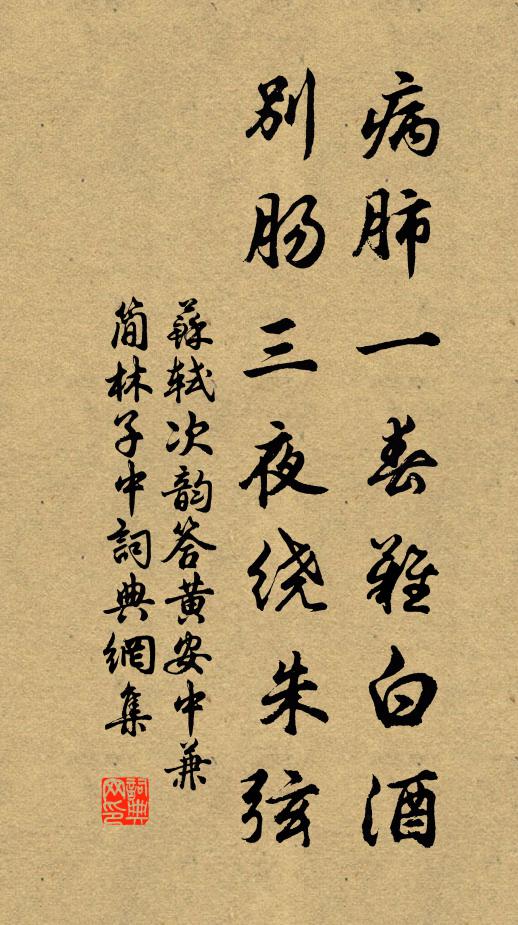 病肺一春难白酒
别肠三夜绕朱弦
蘇軾次韵答黄安中兼
简林子中詞典網集
詞典网印